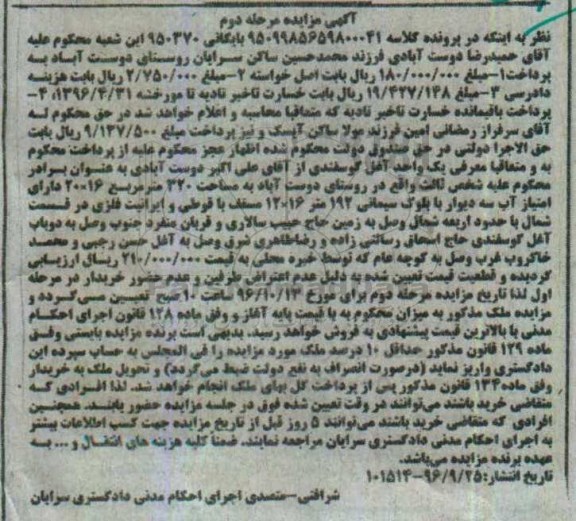 آگهی مزایده مرحله دوم
نظر به اینکه در پرونده کلاسه ۹۵۰۹۹۸۵۶۵۹۸۰۰۰۴۱ بایگانی ۹۵۰۳۷۰ این شعبه محکوم علیه
آقای حمیدرضا دوست آبادی فرزند محمدحسین ساکن سرایان روستای دوست آباد به
پرداخت۱-مبلغ ۱۸۰/۰۰۰/۰۰۰ ریال بابت اصل خواسته ۲-مبلغ ۲/۷۵۰/۰۰۰ ریال بابت هزینه
دادرسی ۳-مبلغ ۱۹/۴۲۷/۱۴۸ ریال بابت خسارت تاخیر تادیه تا مورخه ۱۳۹۶/۴/۳۱، ۴-
پرداخت باقیمانده خسارت تاخیر تادیه که متعاقبا محاسبه و اعلام خواهد شد در حق محکوم له
آقای سرفراز رمضانی امین فرزند مولا ساکن آیسک و نیز پرداخت مبلغ ۹/۱۳۷/۵۰۰ ریال بابت
حق الاجرا دولتی در حق صندوق دولت محکوم شده اظهار عجز محکوم علیه از پرداخت محکوم
به و متعاقبا معرفی یک واحد آغل گوسفندی از آقای علی اکبر دوست آبادی به عنوان برادر
محکوم علیه شخص ثالث واقع در روستای دوست آباد به مساحت ۳۲۰ مترمربع ۱۶*۲۰ دارای
امتیاز آب سه دیوار با بلوک سیمانی ۱۹۲ متر ۱۶*۱۲ مسقف با قوطی و ایرانیت فلزی در قسمت
شمال با حدود اربعه شمال وصل به زمین حاج حبیب سالاری و قربان منفرد جنوب وصل به دوباب
آغل گوسفندی حاج اسحاق رسالتی زاده و رضاطاهری شرق وصل به آغل حسن رجبی و محمد
خاکروب غرب وصل به کوچه عام که توسط خبره محلی به قیمت ۲۱۰/۰۰۰/۰۰۰ ریال ارزیابی
گردیده و قطعیت قیمت تعیین شده به دلیل عدم اعتراض طرفین و عدم حضور خریدار در مرحله
اول لذا تاریخ مزایده مرحله دوم برای مورخ ۹۶/۱۰/۱۳ ساعت ۱۰ صبح تعیین می گردد و
مزایده ملک مذکور به میزان محکوم به با قیمت پایه آغاز و وفق ماده ۱۲۸ قانون اجرای احکام
مدنی با بالاترین قیمت پیشنهادی به فروش خواهد رسید. بدیهی است برنده مزایده بایستی وفق
ماده ۱۲۹ قانون مذکور حداقل ۱۰ درصد ملک مورد مزایده را فی المجلس به حساب سپرده این
دادگستری واریز نماید (درصورت انصراف به نفع دولت ضبط می گردد) و تحویل ملک به خریدار
وفق ماده۱۳۴ قانون مذکور پس از پرداخت کل بهای ملک انجام خواهد شد. لذا افرادی که
متقاضی خرید باشند می توانند هر وقت تعیین شده فوق در جلسه مزایده حضور یابند. همچنین
افرادی که متقاضی خرید باشند می توانند ۵ روز قبل از تاریخ مزایده جهت کسب اطلاعات بیشتر
به اجرای احکام مدنی دادگستری سرایان مراجعه نمایند. ضمنا کلیه هزینه های انتقال و ... به
عهده برنده مزایده می‌باشد.
تاریخ انتشار: ۹۶/۹/۲۵-۱۰۱۵۱۴
شرافتی-متصدی اجرای احکام مدنی دادگستری سرایان